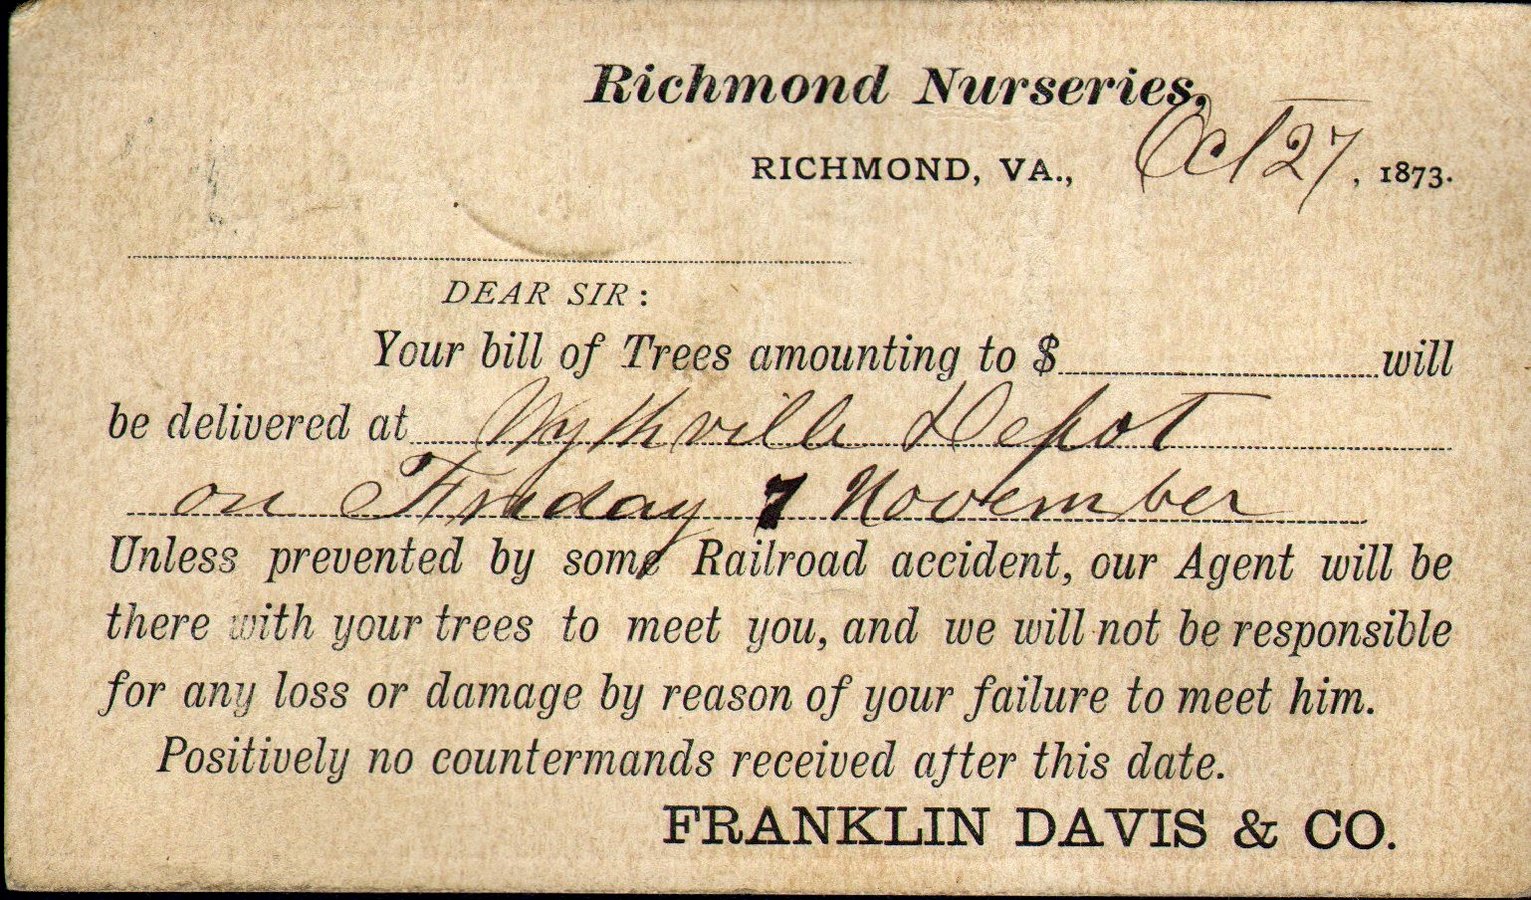 Richmond Nurseries,
RICHMOND, VA., Oct 27, 1873.
DEAR SIR:
Your bill of Trees amounting to $ will
be delivered at Wythville Depot
on Friday 7 November
Unless prevented by some Railroad accident, our Agent will be
there with your trees to meet you, and we will not be responsible
for any loss or damage by reason of your failure to meet him.
Positively no countermands received after this date.
FRANKLIN DAVIS & CO.